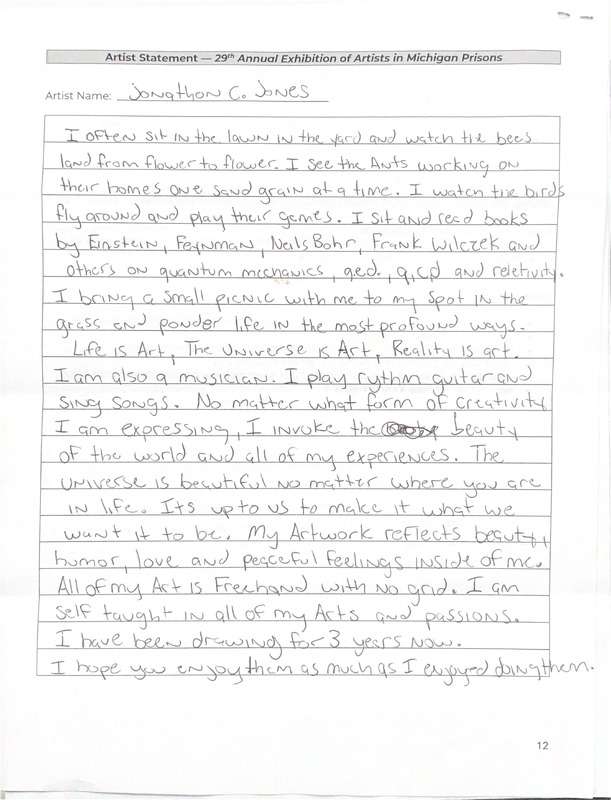 Artist Statement — 29th Annual Exhibition of Artists in Michigan Prisons
Artist Name: Jonathon C. Jones
I often sit in the lawn in the yard and watch the bees
land from flower to flower. I see the Ants working on
their homes one sand grain at a time. I watch the birds
fly around and play their games. I sit and read books
by Einstein, Feynman, Neils Bohr, Frank Wilczek and
others on quantum mechanics, q.e.d., q.c.d and reletivity.
I bring a small picnic with me to my spot in the
grass and ponder life in the most profound ways.
Life is Art, The Universe is Art, Reality is art.
I am also a musician. I play rythm guitar and
sing songs. No matter what form of creativity
I am expressing, I invoke the beauty
of the world and all of my experiences. The
Universe is beautiful no matter where you are
in life. Its up to us to make it what we
want it to be. My Artwork reflects beauty,
humor, love and peaceful feelings inside of me.
All of my Art is Freehand with no grid. I am
self taught in all of my Arts and passions.
I have been drawing for 3 years now.
I hope you enjoy them as much as I enjoyed doing them.
12